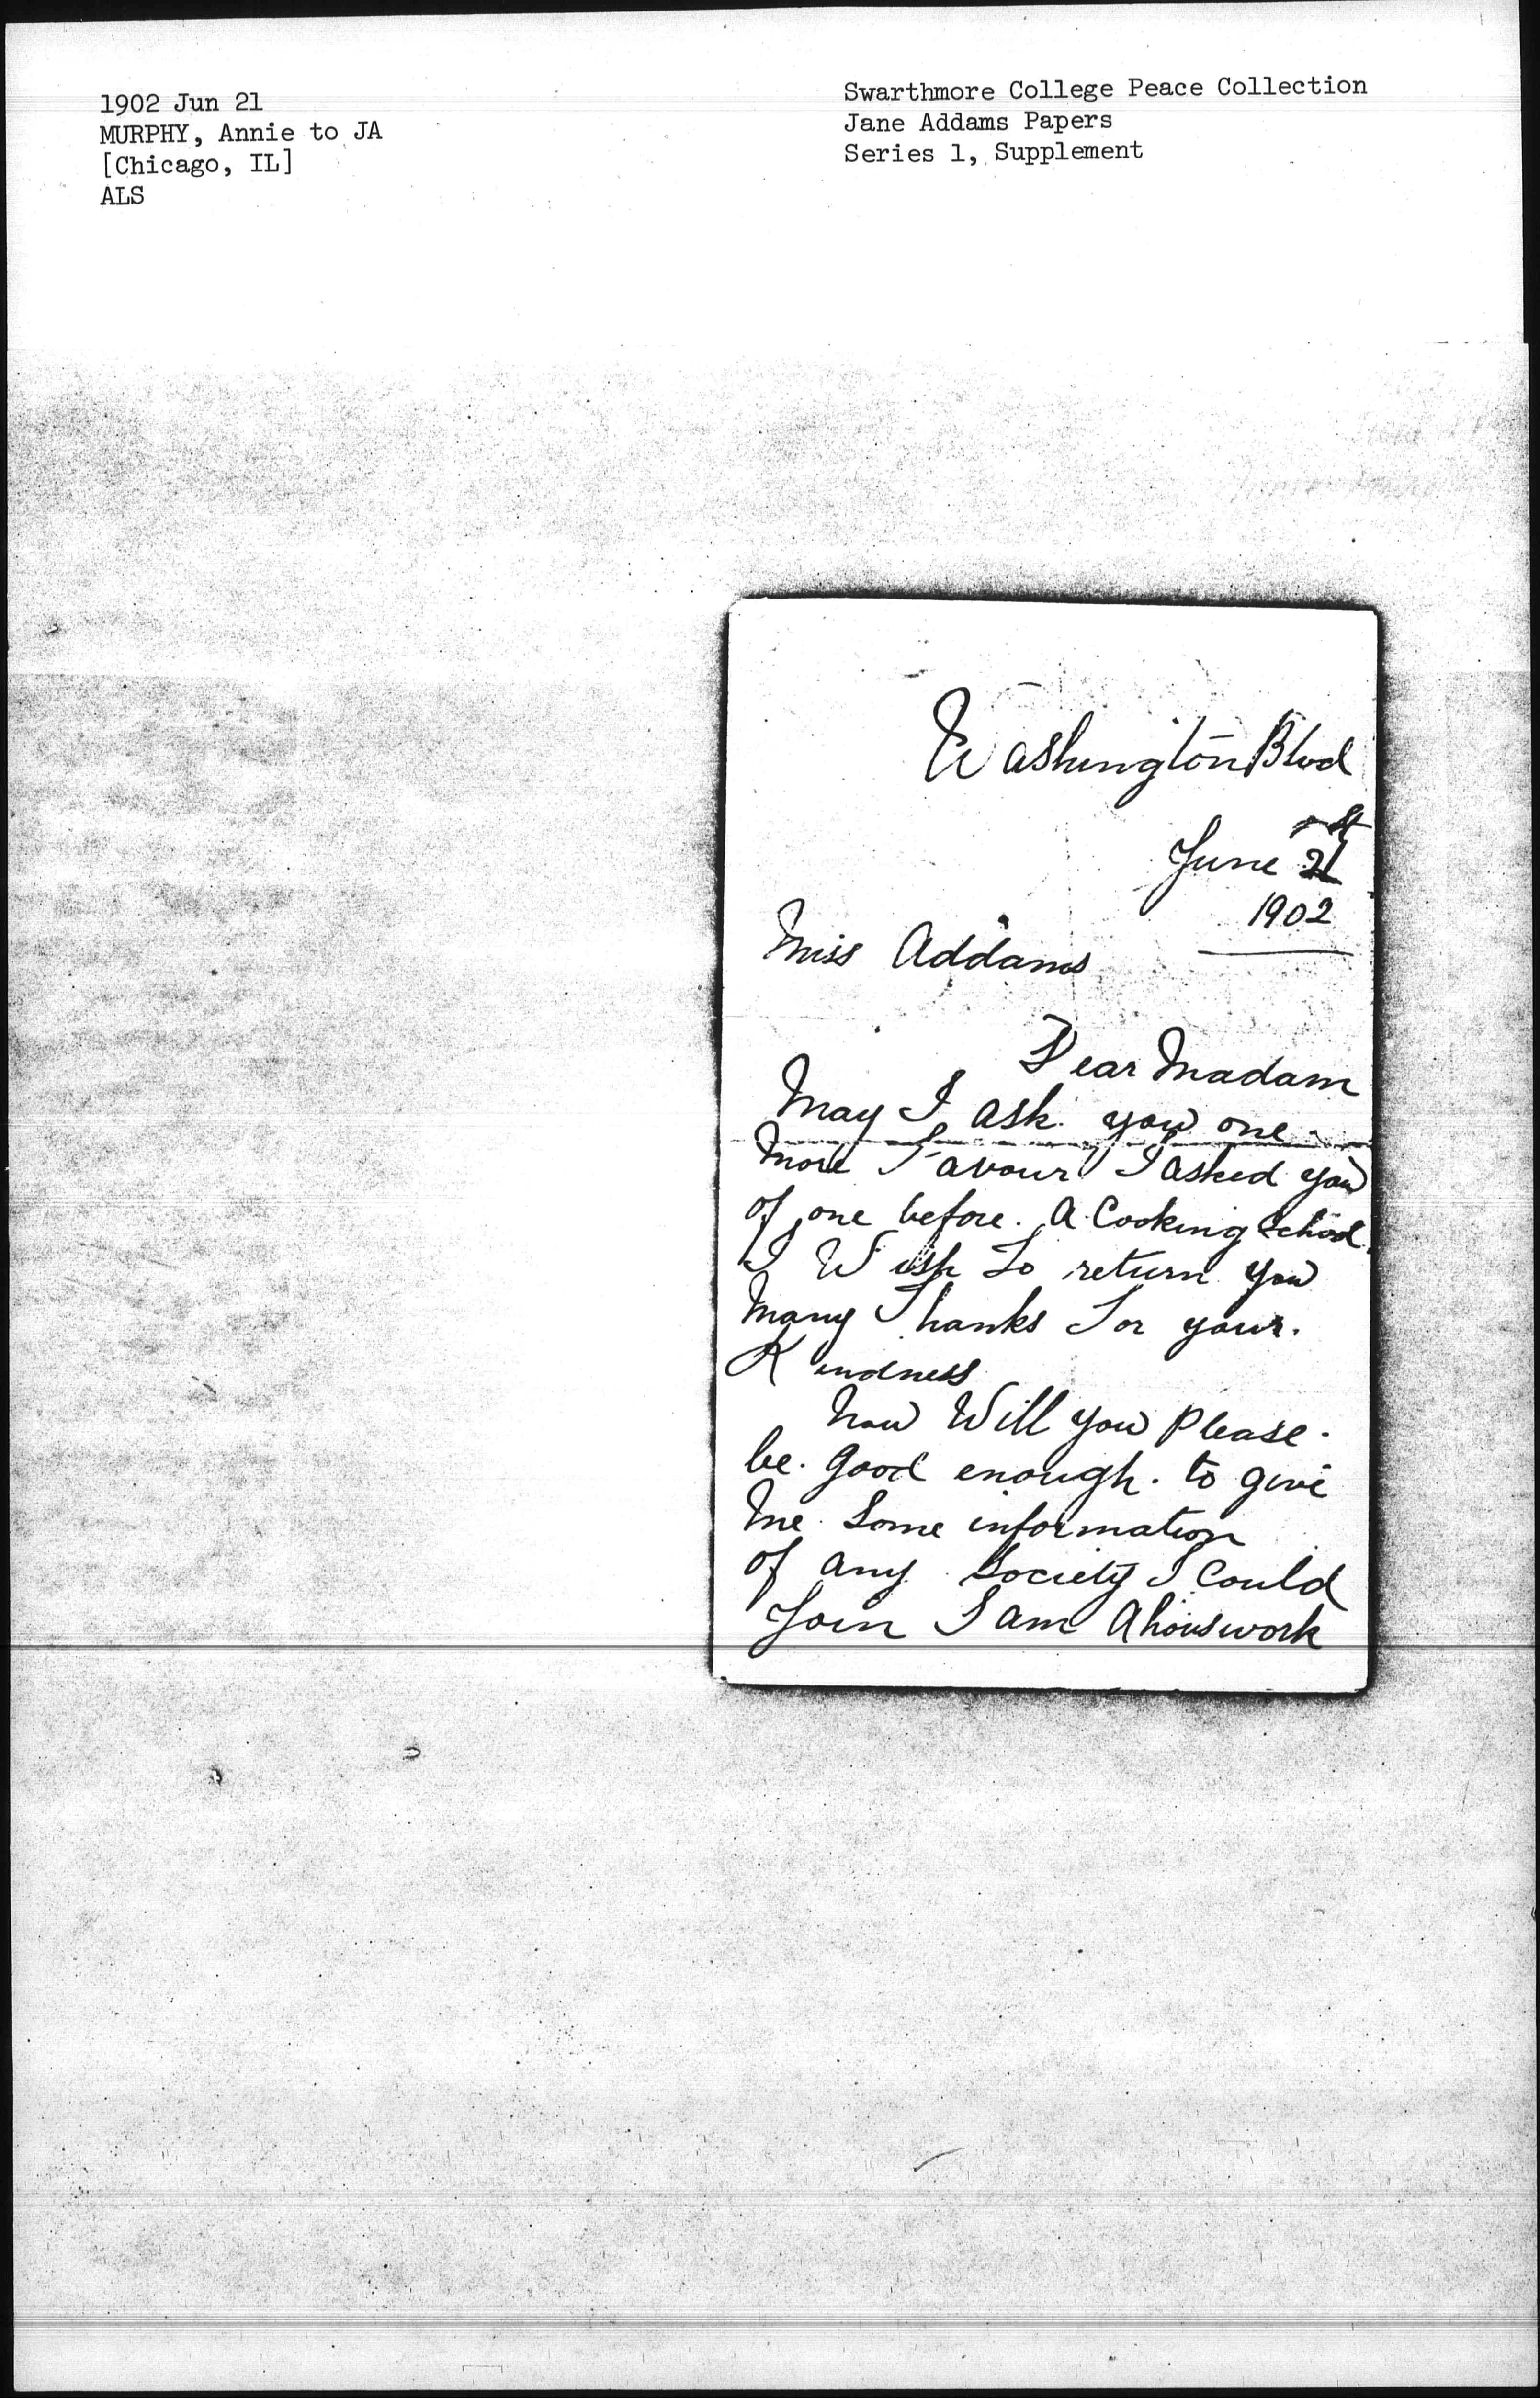 1902 Jun 21
MURPHY, Annie to JA
[Chicago, IL]
ALS
Swarthmore College Peace Collection
Jane Addams Papers
Series 1, Supplement
Washington Blvd
June 21st
1902
Miss Addams
Dear Madam
May I ask you one
More Favour I asked you
of one before. A Cooking School.
I Wish To return you
Many Thanks For your.
Kindness
Now Will you Please.
be. good enough. to give
Me Some information
of any Society I Could
Join I am A houswork